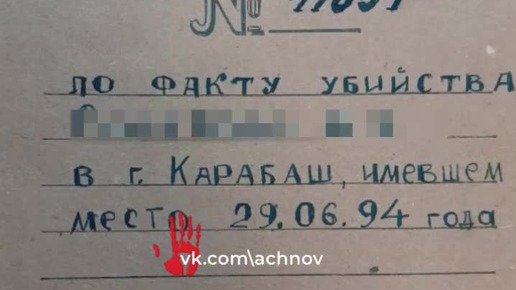 №
ПО ФАКТУ УБИЙСТВА
В г. КАРАБАШ, ИМЕВШЕМ
МЕСТО 29.06.94 года
vk.com\achnov